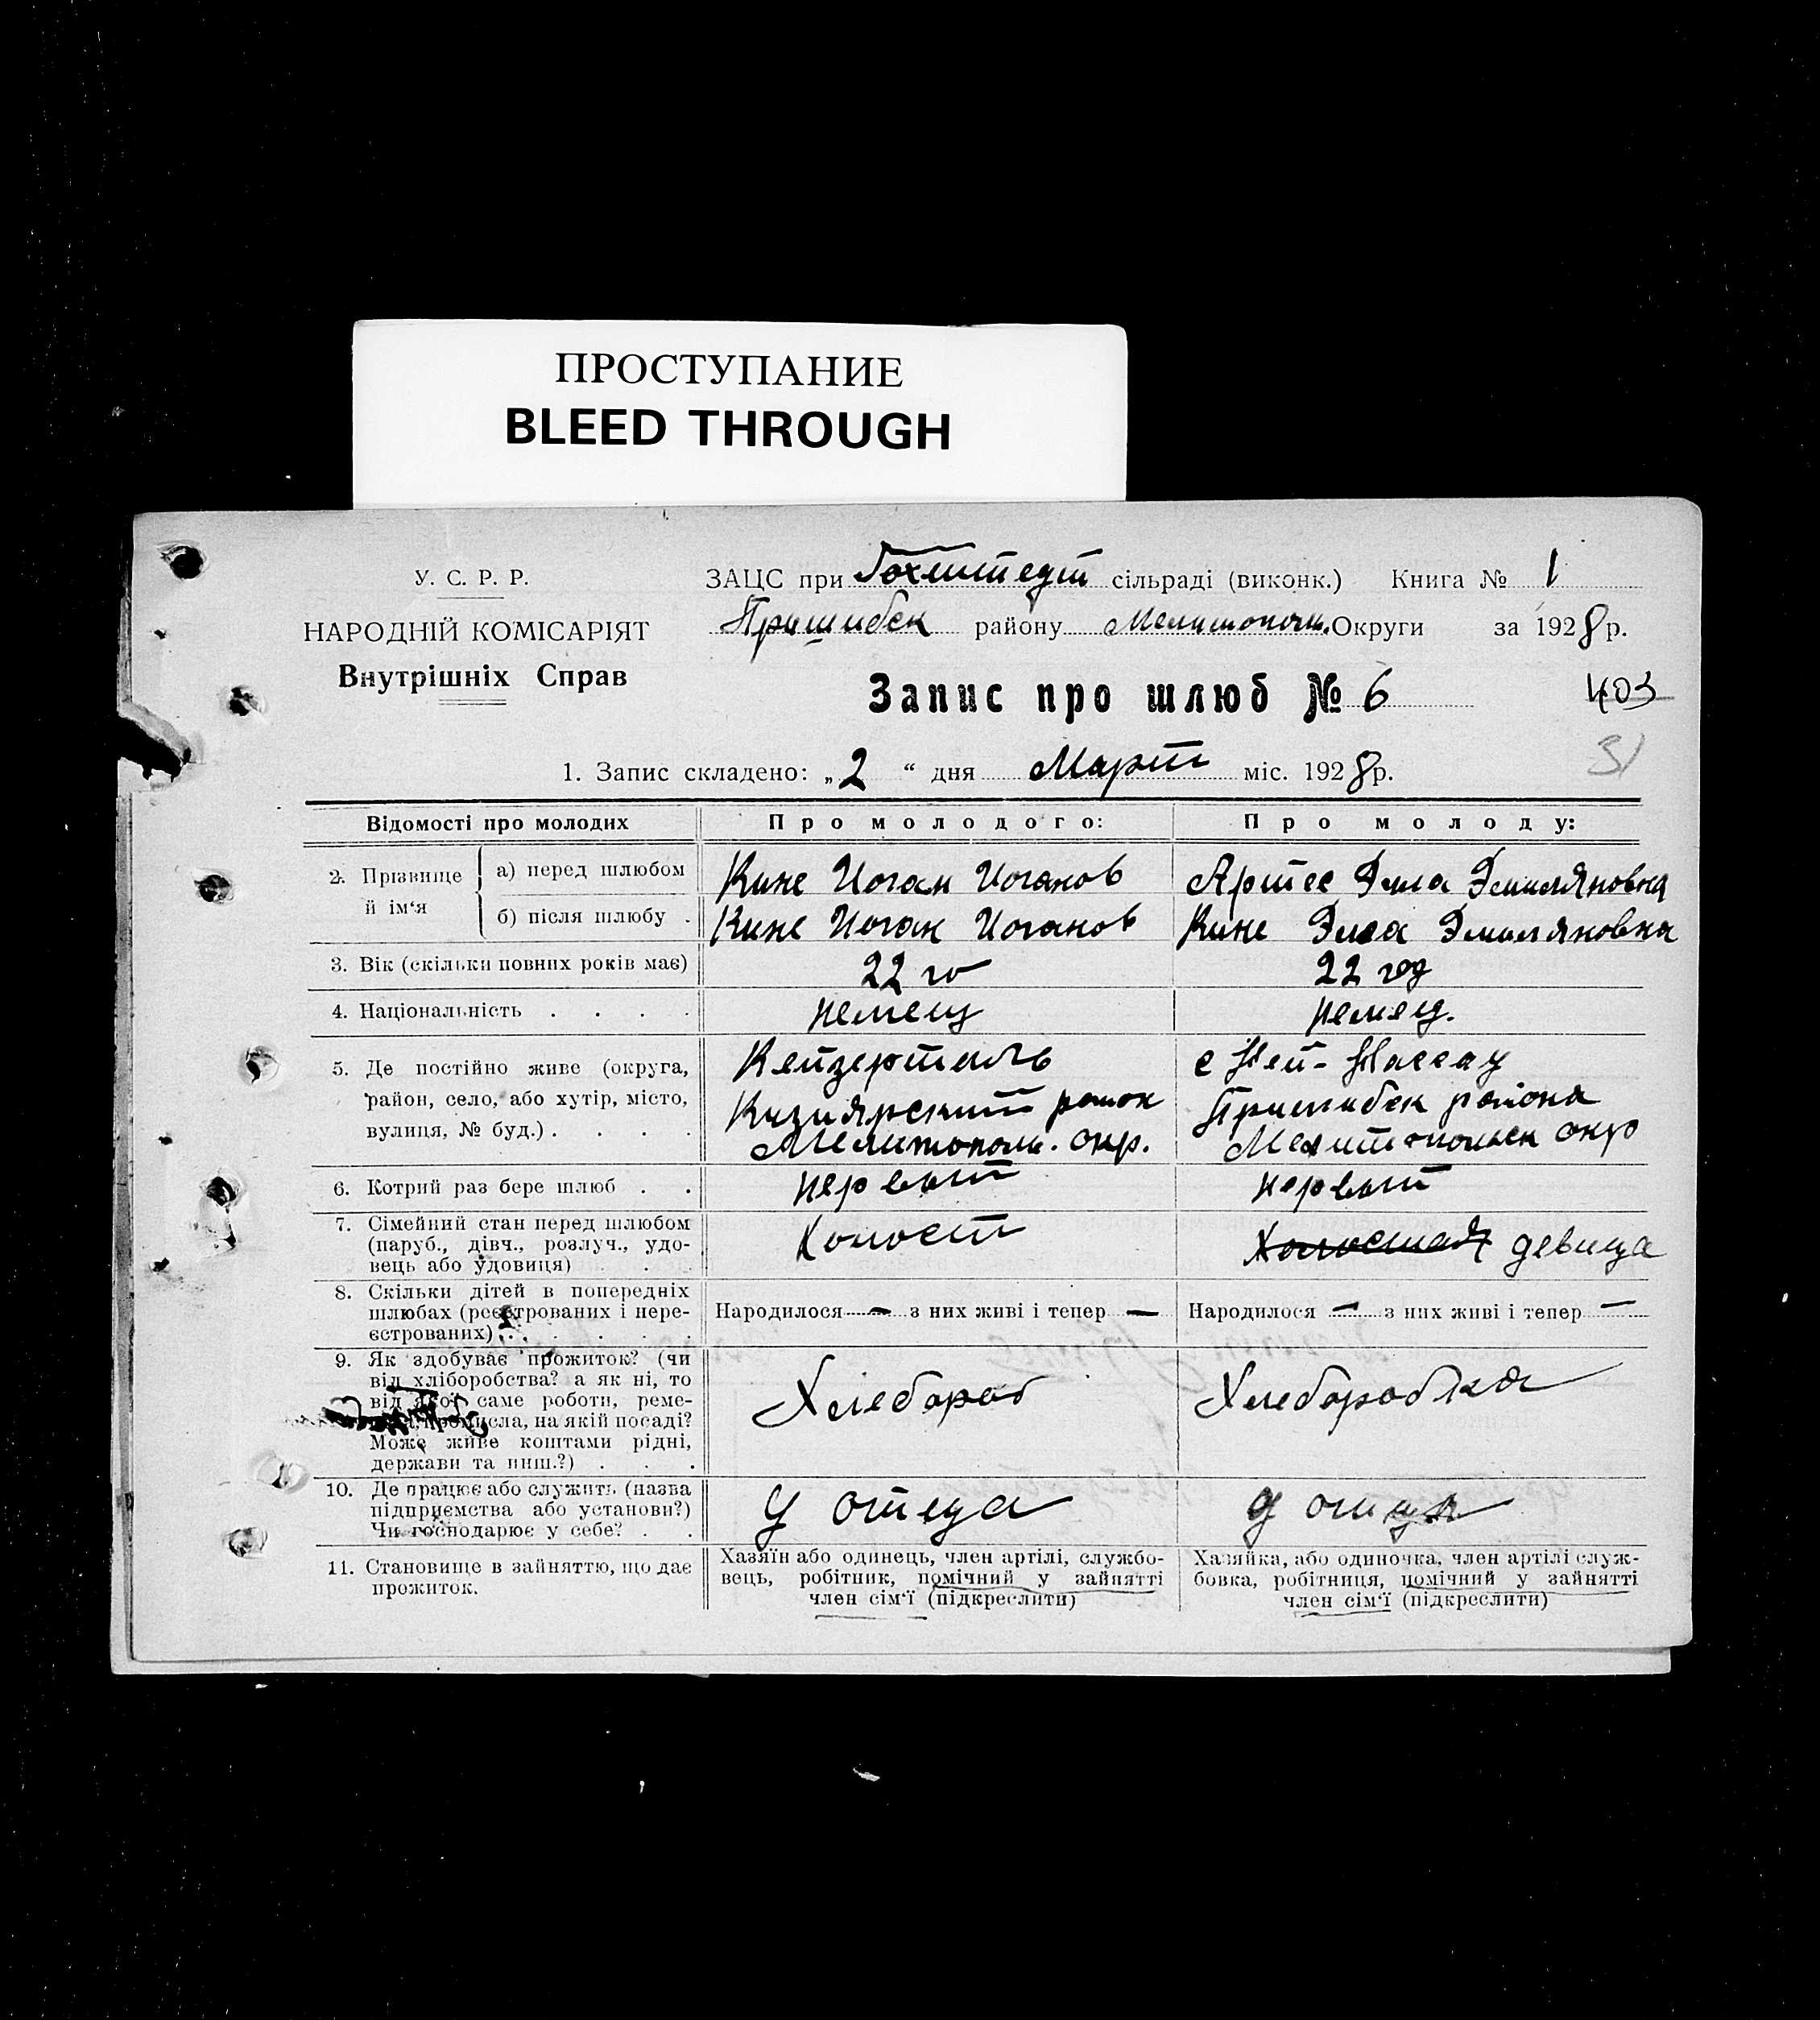 ПРОСТУПАНИЕ
BLEED THROUGH
У. С. Р. Р.
НАРОДНІЙ КОМІСАРІЯТ
Внутрішніх Справ
ЗАЦС при Гохштедт сільраді (виконк.) Книга № 1
Пришибск району Мелитополь. Округи за 1928 р.
Запис про шлюб № 6
403
31
1. Запис складено: „2 “ дня Март міс. 1928 р.
Відомості про молодих
Про молодого:
Про молоду:
2. Прізвище й ім‘я
а) перед шлюбом
Кине Иоган Иоганов
Артес Элла Эмиляновна
б) після шлюбу .
Кине Иоган Иоганов
Кине Элла Эмиляновна
3. Вік (скільки повних років має)
22 го
22 год
4. Національність . . . .
немец
немец.
5. Де постійно живе (округа,
район, село, або хутір, місто,
вулиця, № буд.) . . . .
Кейзерталь
Кизиярский район
Мелитополь. окр.
с Ней-Нассау
Пришибск района
Мелитопольск окр
6. Котрий раз бере шлюб . .
первый
первый
7. Сімейний стан перед шлюбом
(паруб., дівч., розлуч., удо-
вець або удовиця) . . .
Холост
Холостая девица
8. Скільки дітей в попередніх
шлюбах (реєстрованих і нере-
єстрованих) . . . . . .
Народилося — з них живі і тепер —
Народилося — з них живі і тепер —
9. Як здобуває прожиток? (чи
від хліборобства? а як ні, то
від якої саме роботи, реме-
сла, промисла, на якій посаді?
Може живе коштами рідні,
держави та инш.?) . . .
Хлебороб
Хлеборобка
10. Де працює або служить (назва
підприємства або установи?)
Чи господарює у себе? . .
у отеца
у отца
11. Становище в зайняттю, що дає
прожиток.
Хазяїн або одинець, член артілі, службо-
вець, робітник, помічний у зайнятті
член сім‘ї (підкреслити)
Хазяйка, або одиночка, член артілі служ-
бовка, робітниця, помічний у зайнятті
член сім‘ї (підкреслити)